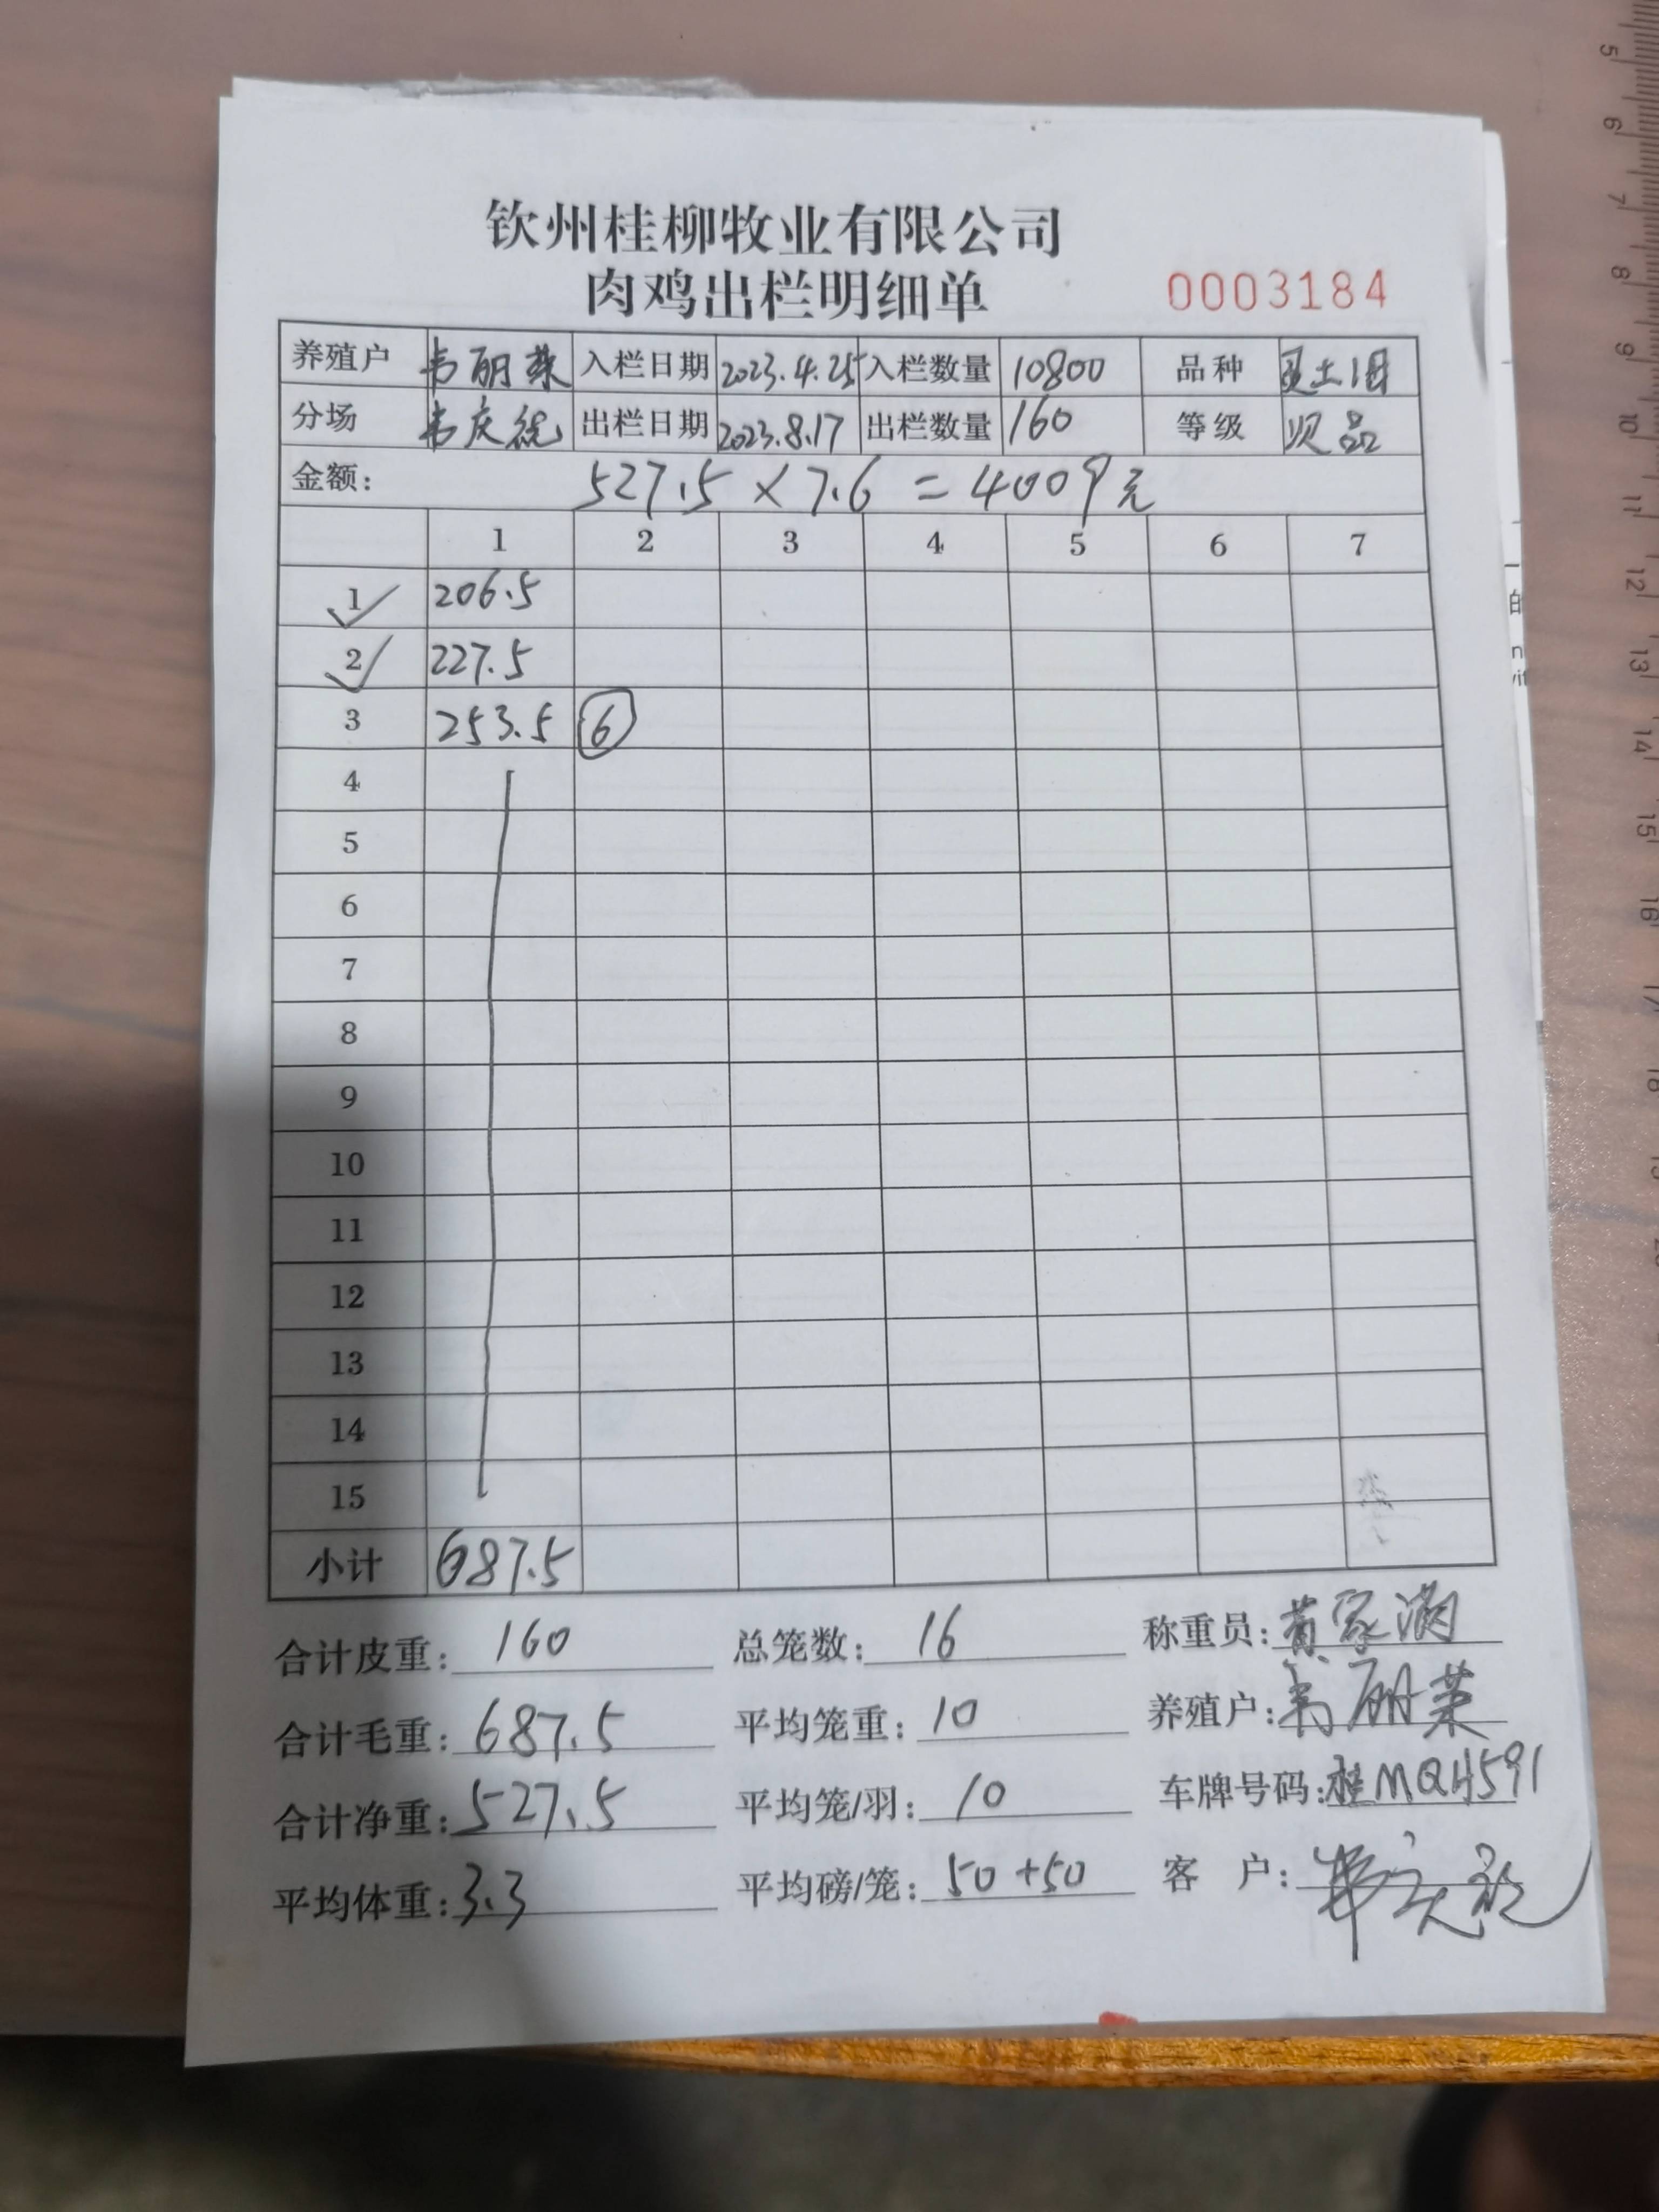 钦州桂柳牧业有限公司
肉鸡出栏明细单 0003184
养殖户 韦丽荣 入栏日期 2023.4.25 入栏数量 10800 品种 土
分场 韦庆统 出栏日期 2023.8.17 出栏数量 160 等级 次品
金额: 527.5 × 7.6 = 4009元
1 2 3 4 5 6 7
1 206.5
2 227.5
3 253.5 6
4
5
6
7
8
9
10
11
12
13
14
15
小计 687.5
合计皮重: 160 总笼数: 16 称重员: 黄家满
合计毛重: 687.5 平均笼重: 10 养殖户: 韦丽荣
合计净重: 527.5 平均笼/羽: 10 车牌号码: 桂MQH591
平均体重: 3.3 平均磅/笼: 50+50 客 户:
5
6
7
8
9
10
11
12
13
14
15
16
17
18